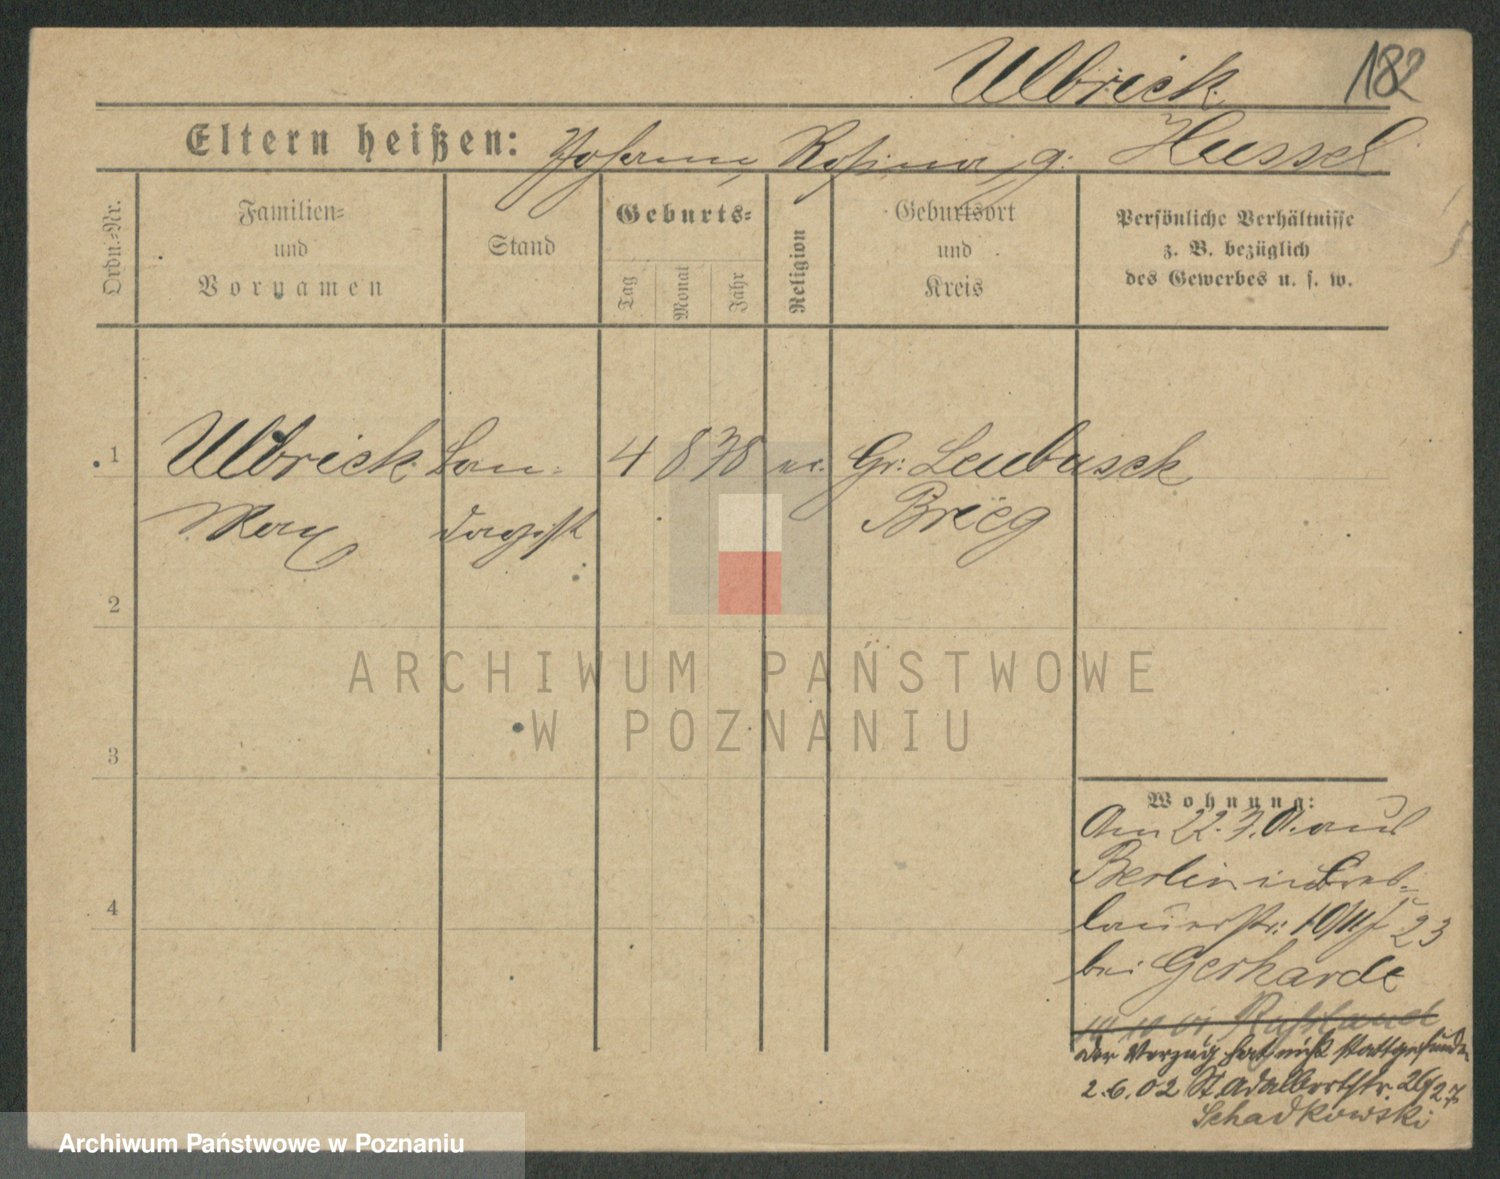 Ulbrich 182
Eltern heißen: Johann, Rosina, g. Hussel
Ordn.-Nr.
Familien-
und
Vornamen
Stand
Geburts-
Tag
Monat
Jahr
Religion
Geburtsort
und
Kreis
Persönliche Verhältnisse
z. B. bezüglich
des Gewerbes u. s. w.
1 Ulbrich 4 8 38 Gr: Leubusch
Max Brieg
2
3
4
ARCHIWUM PAŃSTWOWE
W POZNANIU
Wohnung:
Am 22. aus
Berlin in Bres-
lauerstr: 23
bei Gerharde
Rußland
der Verzug hat nicht stattgefunden
2.6.02 St. Adalbertstr. 26/27
Schadkowski
Archiwum Państwowe w Poznaniu